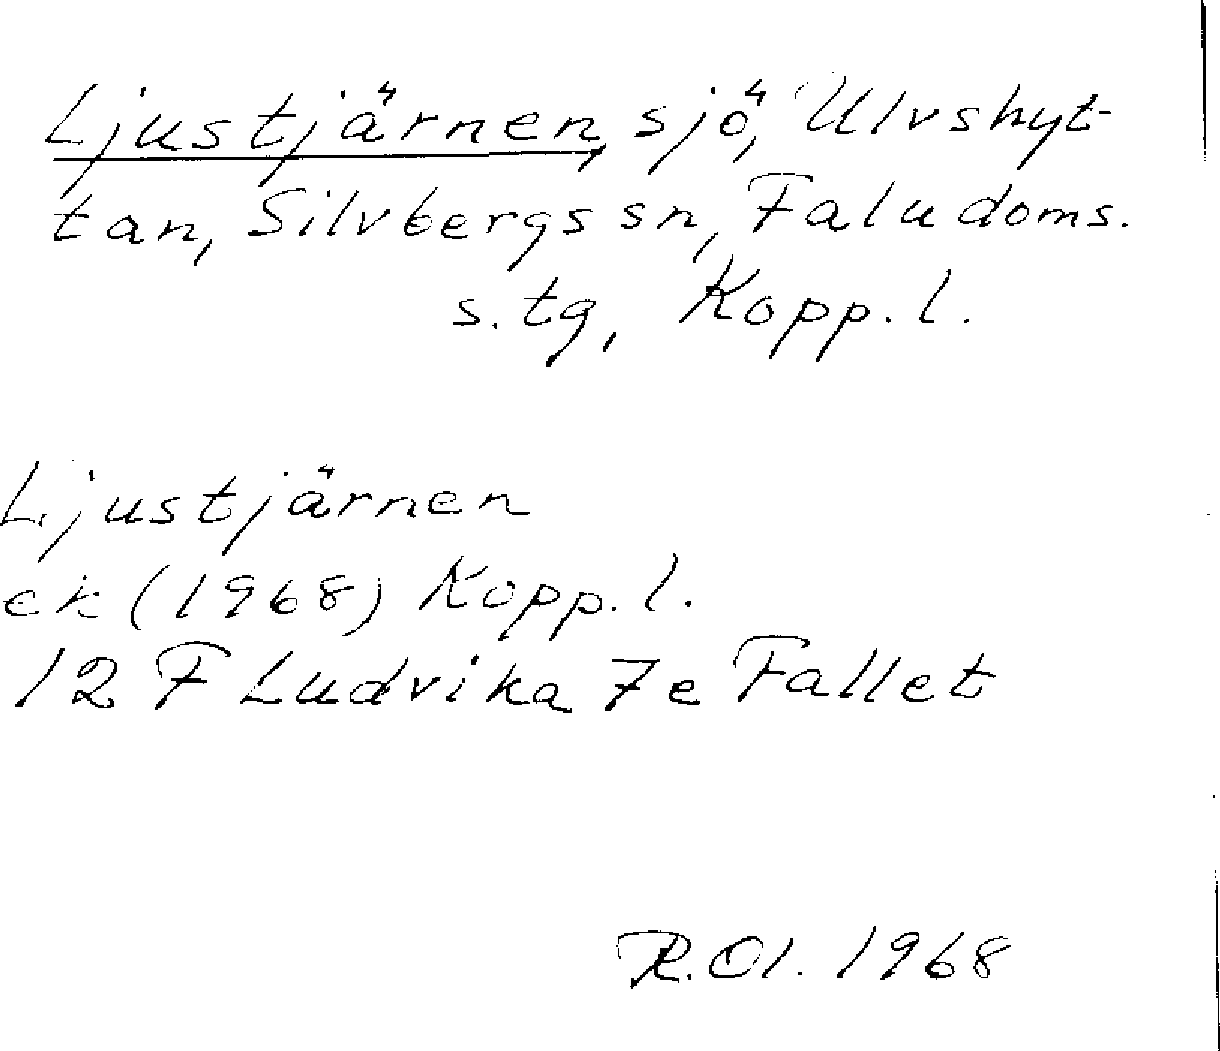 Ljustjärnen, sjö, Ulvshyt-
tan, Silvbergs sn, Falu doms.
s. tg, Kopp. l.
Ljustjärnen
ek (1968) Kopp. l.
12 F Ludvika 7e Fallet
R. Ol. 1968